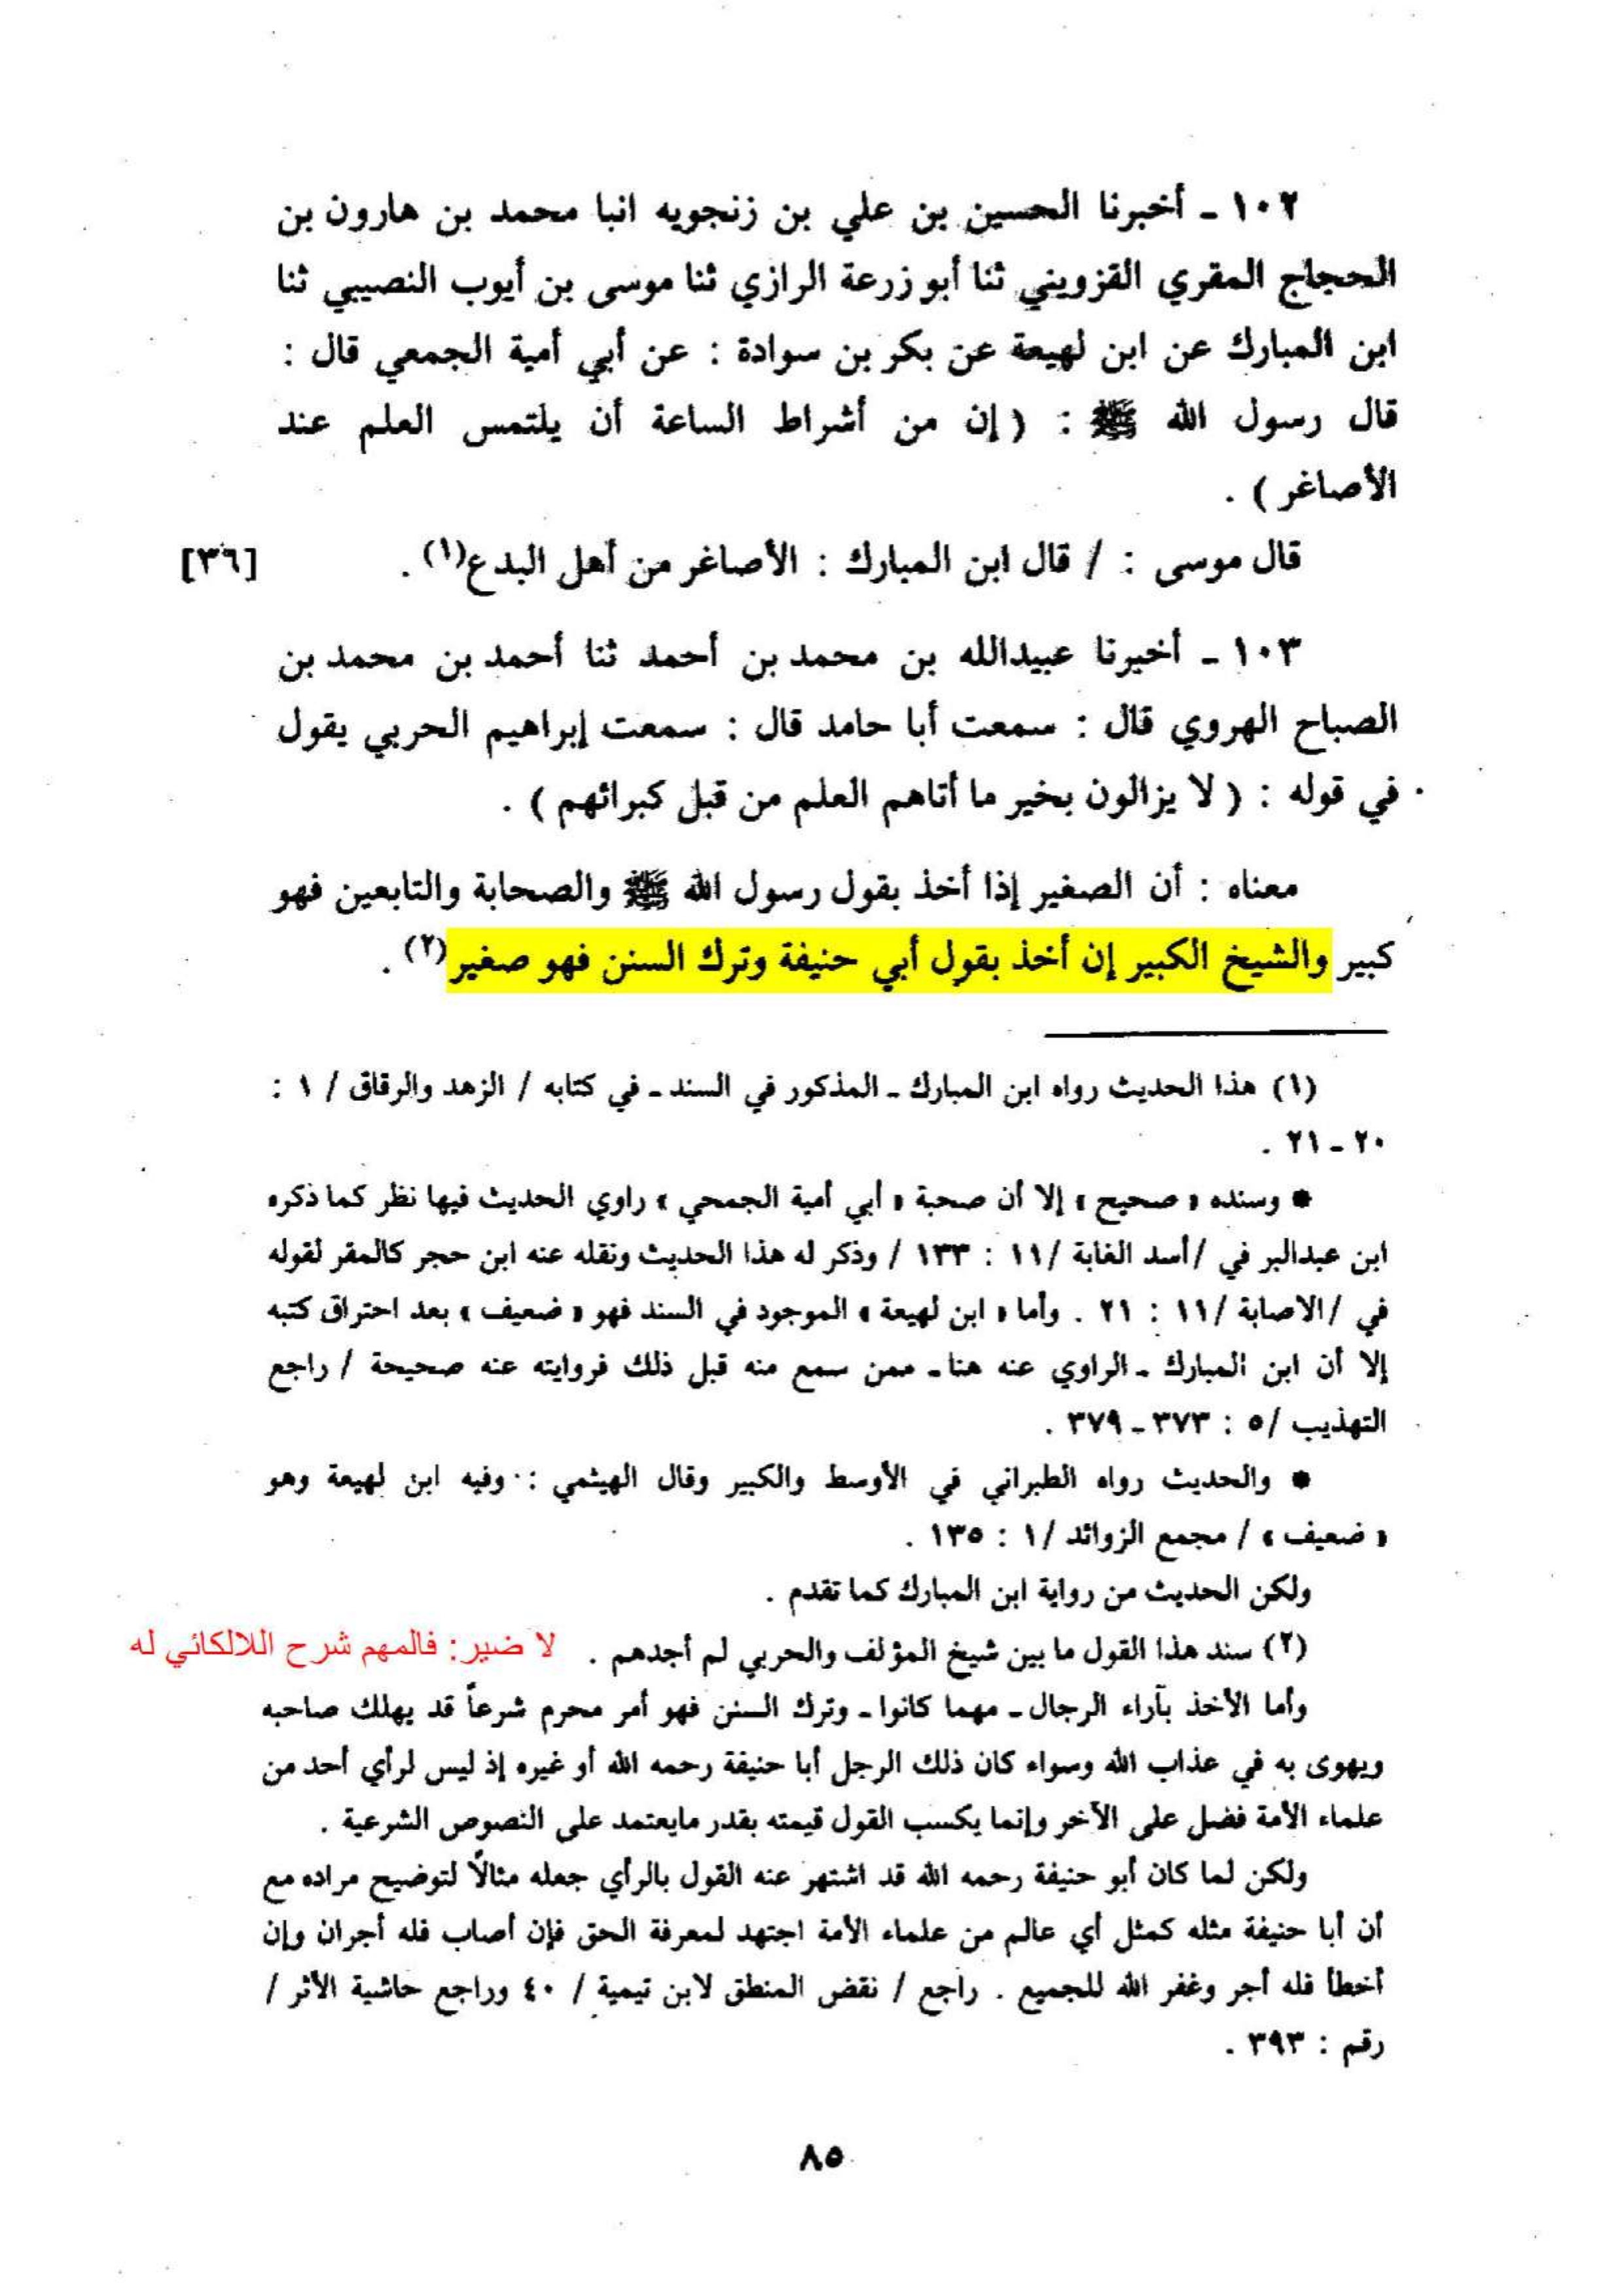 ١٠٢ ـ أخبرنا الحسين بن علي بن زنجويه انبا محمد بن هارون بن
الحجاج المقري القزويني ثنا أبو زرعة الرازي ثنا موسى بن أيوب النصيبي ثنا
ابن المبارك عن ابن لهيعة عن بكر بن سوادة : عن أبي أمية الجمعي قال :
قال رسول الله ﷺ : ( إن من أشراط الساعة أن يلتمس العلم عند
الأصاغر ) .
قال موسى : / قال ابن المبارك : الأصاغر من أهل البدع(١) . [٣٦]
١٠٣ ـ أخبرنا عبيدالله بن محمد بن أحمد ثنا أحمد بن محمد بن
الصباح الهروي قال : سمعت أبا حامد قال : سمعت إبراهيم الحربي يقول
في قوله : ( لا يزالون بخير ما أتاهم العلم من قبل كبرائهم ) .
معناه : أن الصغير إذا أخذ بقول رسول الله ﷺ والصحابة والتابعين فهو
كبير والشيخ الكبير إن أخذ بقول أبي حنيفة وترك السنن فهو صغير(٢) .
(١) هذا الحديث رواه ابن المبارك ـ المذكور في السند ـ في كتابه / الزهد والرقاق / ١ :
٢٠ ـ ٢١ .
* وسنده « صحيح » إلا أن صحبة « أبي أمية الجمحي » راوي الحديث فيها نظر كما ذكره
ابن عبدالبر في /أسد الغابة /١١ : ١٣٣ / وذكر له هذا الحديث ونقله عنه ابن حجر كالمقر لقوله
في /الاصابة /١١ : ٢١ . وأما « ابن لهيعة » الموجود في السند فهو « ضعيف » بعد احتراق كتبه
إلا أن ابن المبارك ـ الراوي عنه هنا ـ ممن سمع منه قبل ذلك فروايته عنه صحيحة / راجع
التهذيب /٥ : ٣٧٣ ـ ٣٧٩ .
* والحديث رواه الطبراني في الأوسط والكبير وقال الهيثمي : وفيه ابن لهيعة وهو
« ضعيف » / مجمع الزوائد /١ : ١٣٥ .
ولكن الحديث من رواية ابن المبارك كما تقدم .
(٢) سند هذا القول ما بين شيخ المؤلف والحربي لم أجدهم . لا ضير: فالمهم شرح اللالكائي له
وأما الأخذ بآراء الرجال ـ مهما كانوا ـ وترك السنن فهو أمر محرم شرعاً قد يهلك صاحبه
ويهوى به في عذاب الله وسواء كان ذلك الرجل أبا حنيفة رحمه الله أو غيره إذ ليس لرأي أحد من
علماء الأمة فضل على الآخر وإنما يكسب القول قيمته بقدر مايعتمد على النصوص الشرعية .
ولكن لما كان أبو حنيفة رحمه الله قد اشتهر عنه القول بالرأي جعله مثالًا لتوضيح مراده مع
أن أبا حنيفة مثله كمثل أي عالم من علماء الأمة اجتهد لمعرفة الحق فإن أصاب فله أجران وإن
أخطأ فله أجر وغفر الله للجميع . راجع / نقض المنطق لابن تيمية / ٤٠ وراجع حاشية الأثر /
رقم : ٣٩٣ .
٨٥